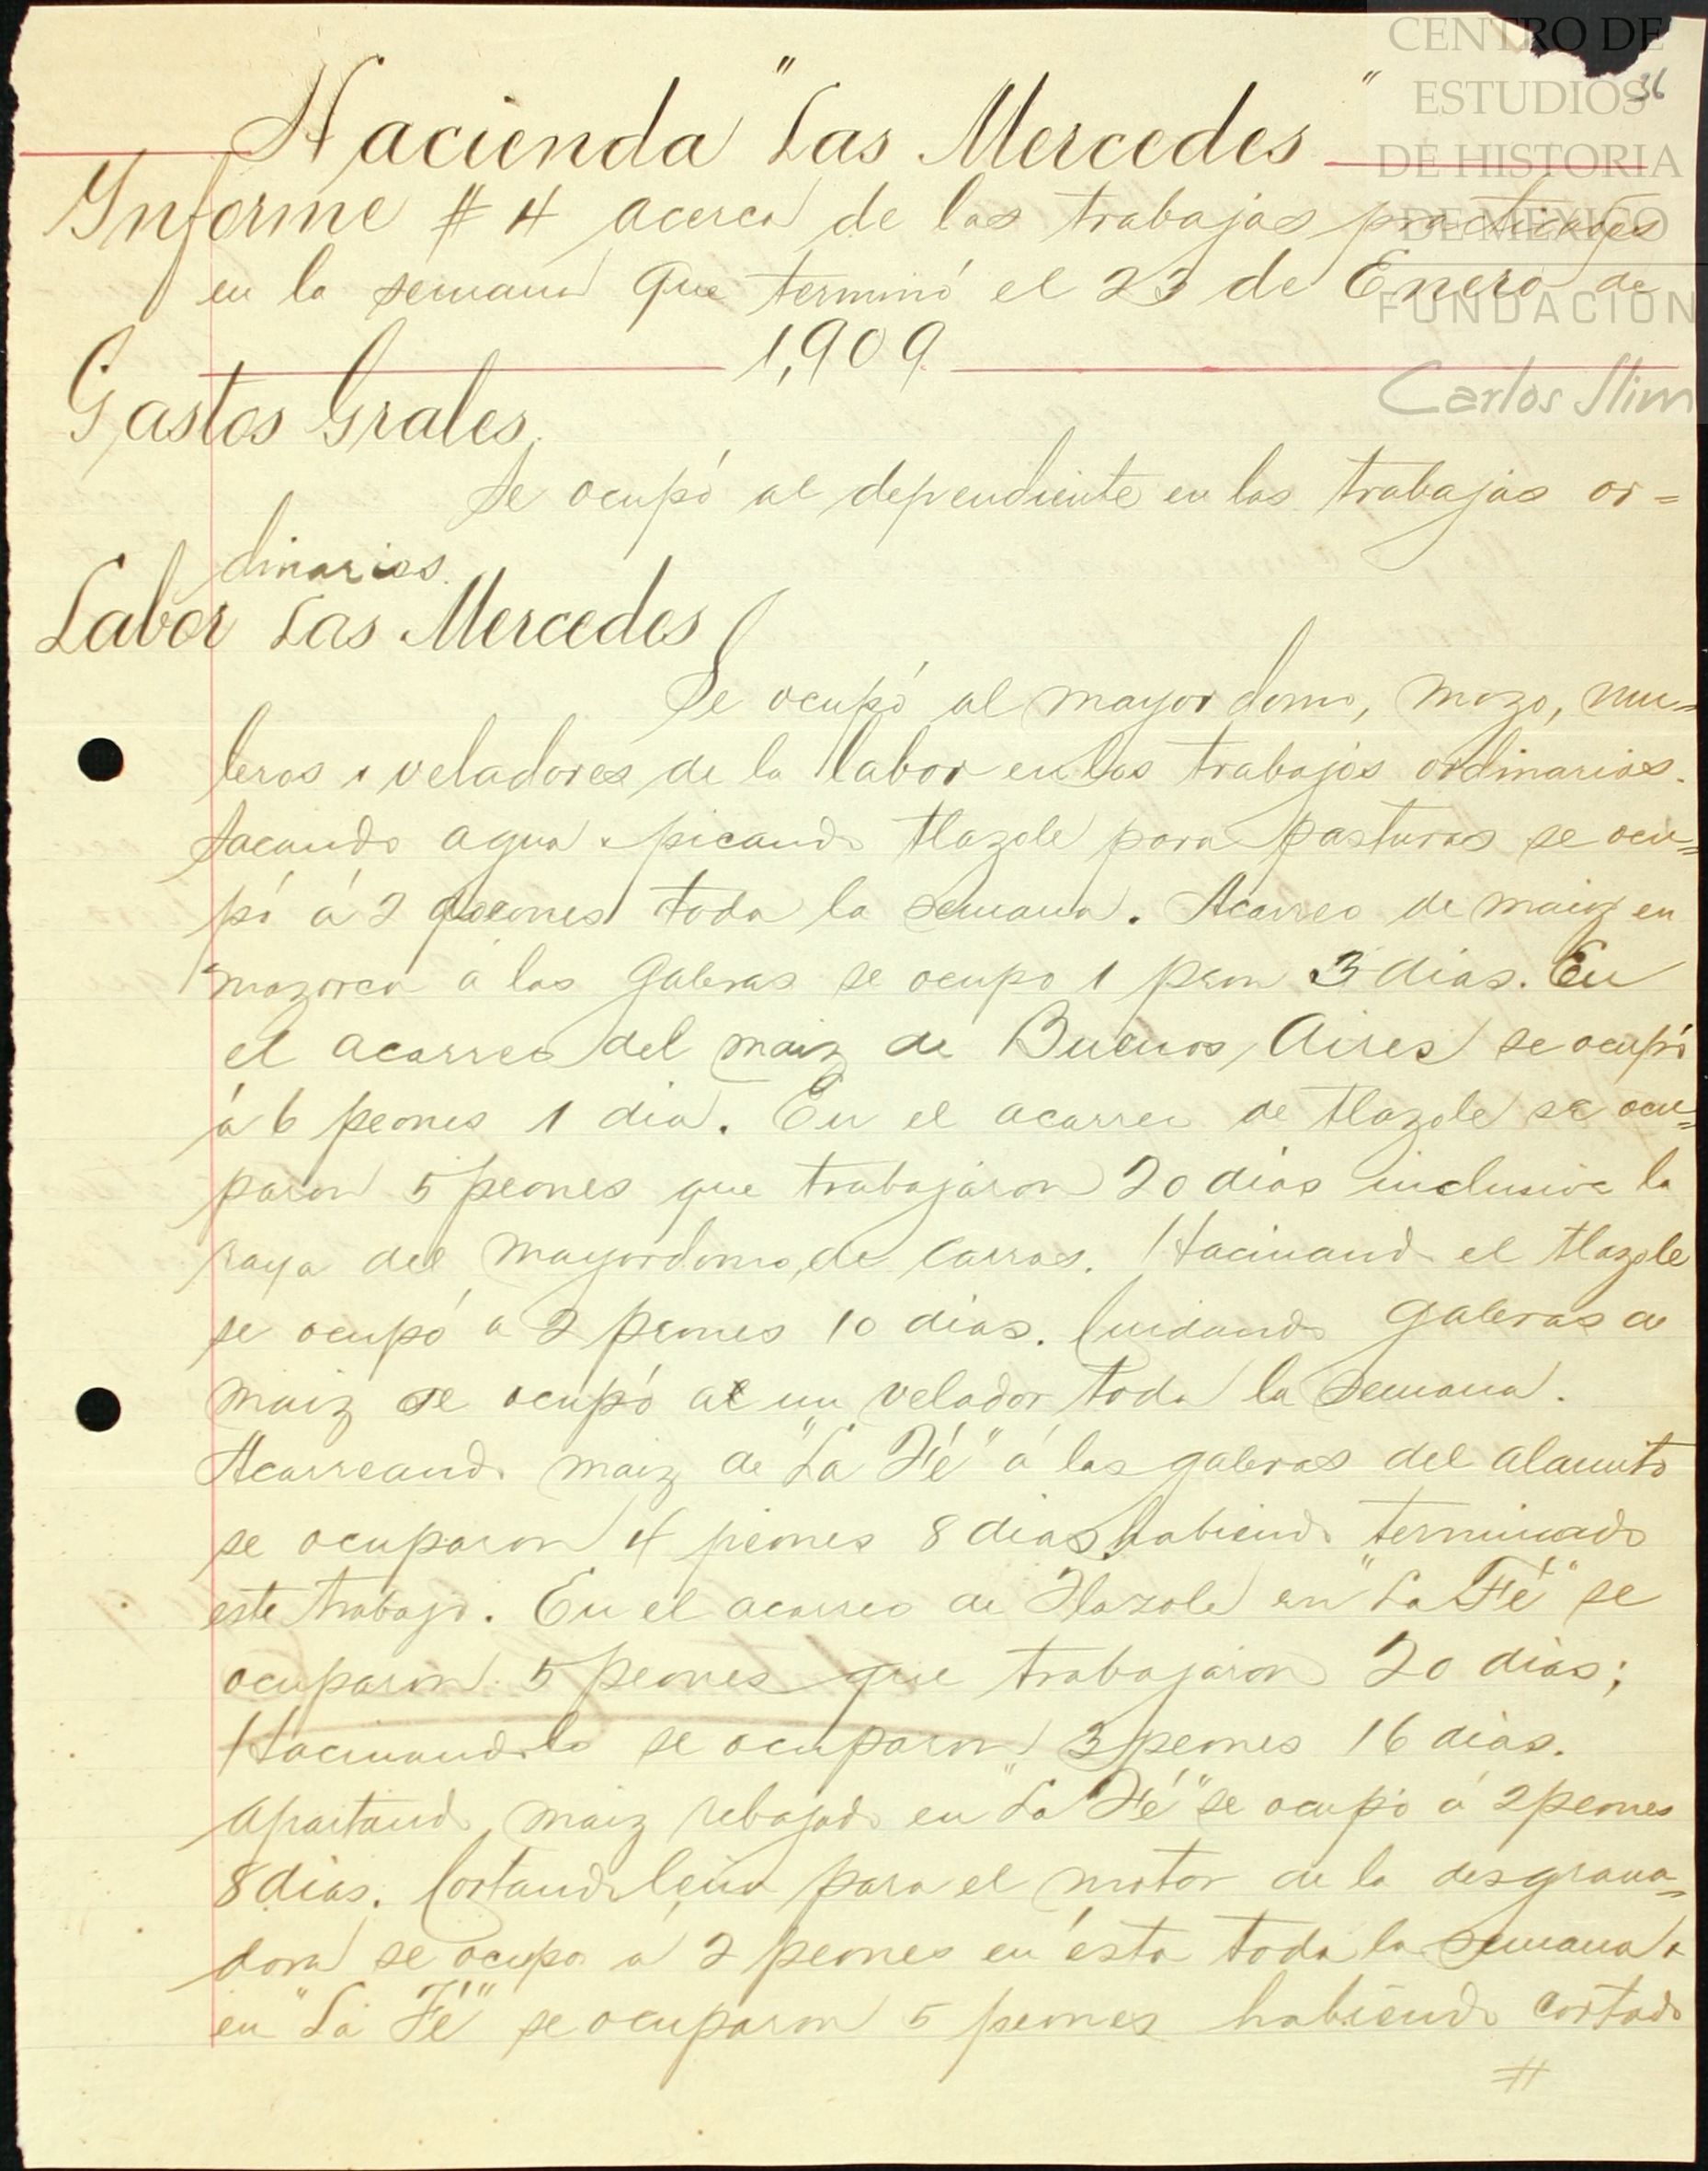 CENTRO DE
ESTUDIOS
DE HISTORIA
DE MÉXICO
FUNDACIÓN
Carlos Slim
36
Hacienda "Las Mercedes"
Informe # 4 acerca de los trabajos practicados
en la semana que terminó el 23 de Enero de
1,909.
Gastos Grales.
Se ocupó al dependiente en los trabajos or=
dinarios.
Labor Las Mercedes
Se ocupó al mayordomo, mozo, mu=
leros y veladores de la labor en los trabajos ordinarios.
Sacando agua y picando tlazole para pasturas se ocu=
pó á 2 peones toda la semana. Acarreo de maiz en
mazorca a las galeras se ocupo 1 peon 3 dias. En
el acarreo del maiz de Buenos Aires se ocupó
á 6 peones 1 dia. En el acarreo de tlazole se ocu=
paron 5 peones que trabajaron 20 dias inclusive la
raya del mayordomo de carros. Hacinando el tlazole
se ocupó a 2 peones 10 dias. Cuidando galeras de
maiz se ocupó a un velador toda la semana.
Acarreando maiz de "La Fé" á las galeras del alamito
se ocuparon 4 peones 8 dias habiendo terminado
este trabajo. En el acarreo de Tlazole en "La Fé" se
ocuparon 5 peones que trabajaron 20 dias;
Hacinandolo se ocuparon 3 peones 16 dias.
Apartando maiz rebajado en "La Fé" se ocupó á 2 peones
8 dias. Cortando leña para el motor de la desgrana=
dora se ocupo a 2 peones en ésta toda la semana y
en "La Fé" se ocuparon 5 peones habiendo cortado
#